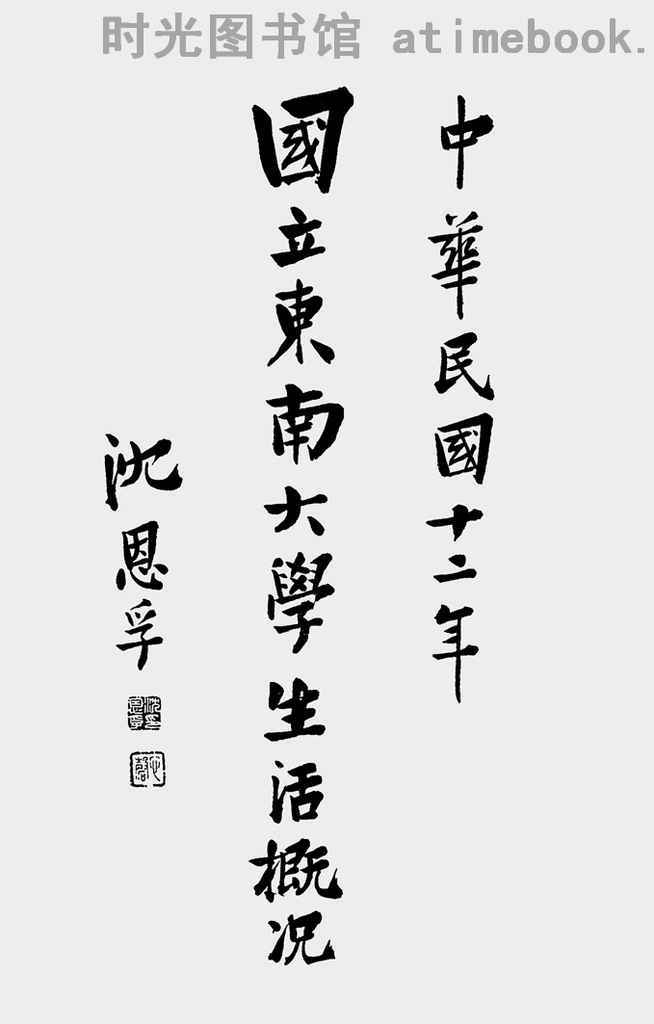 时光图书馆 atimebook.
中華民國十二年
國立東南大學生活概況
沈恩孚